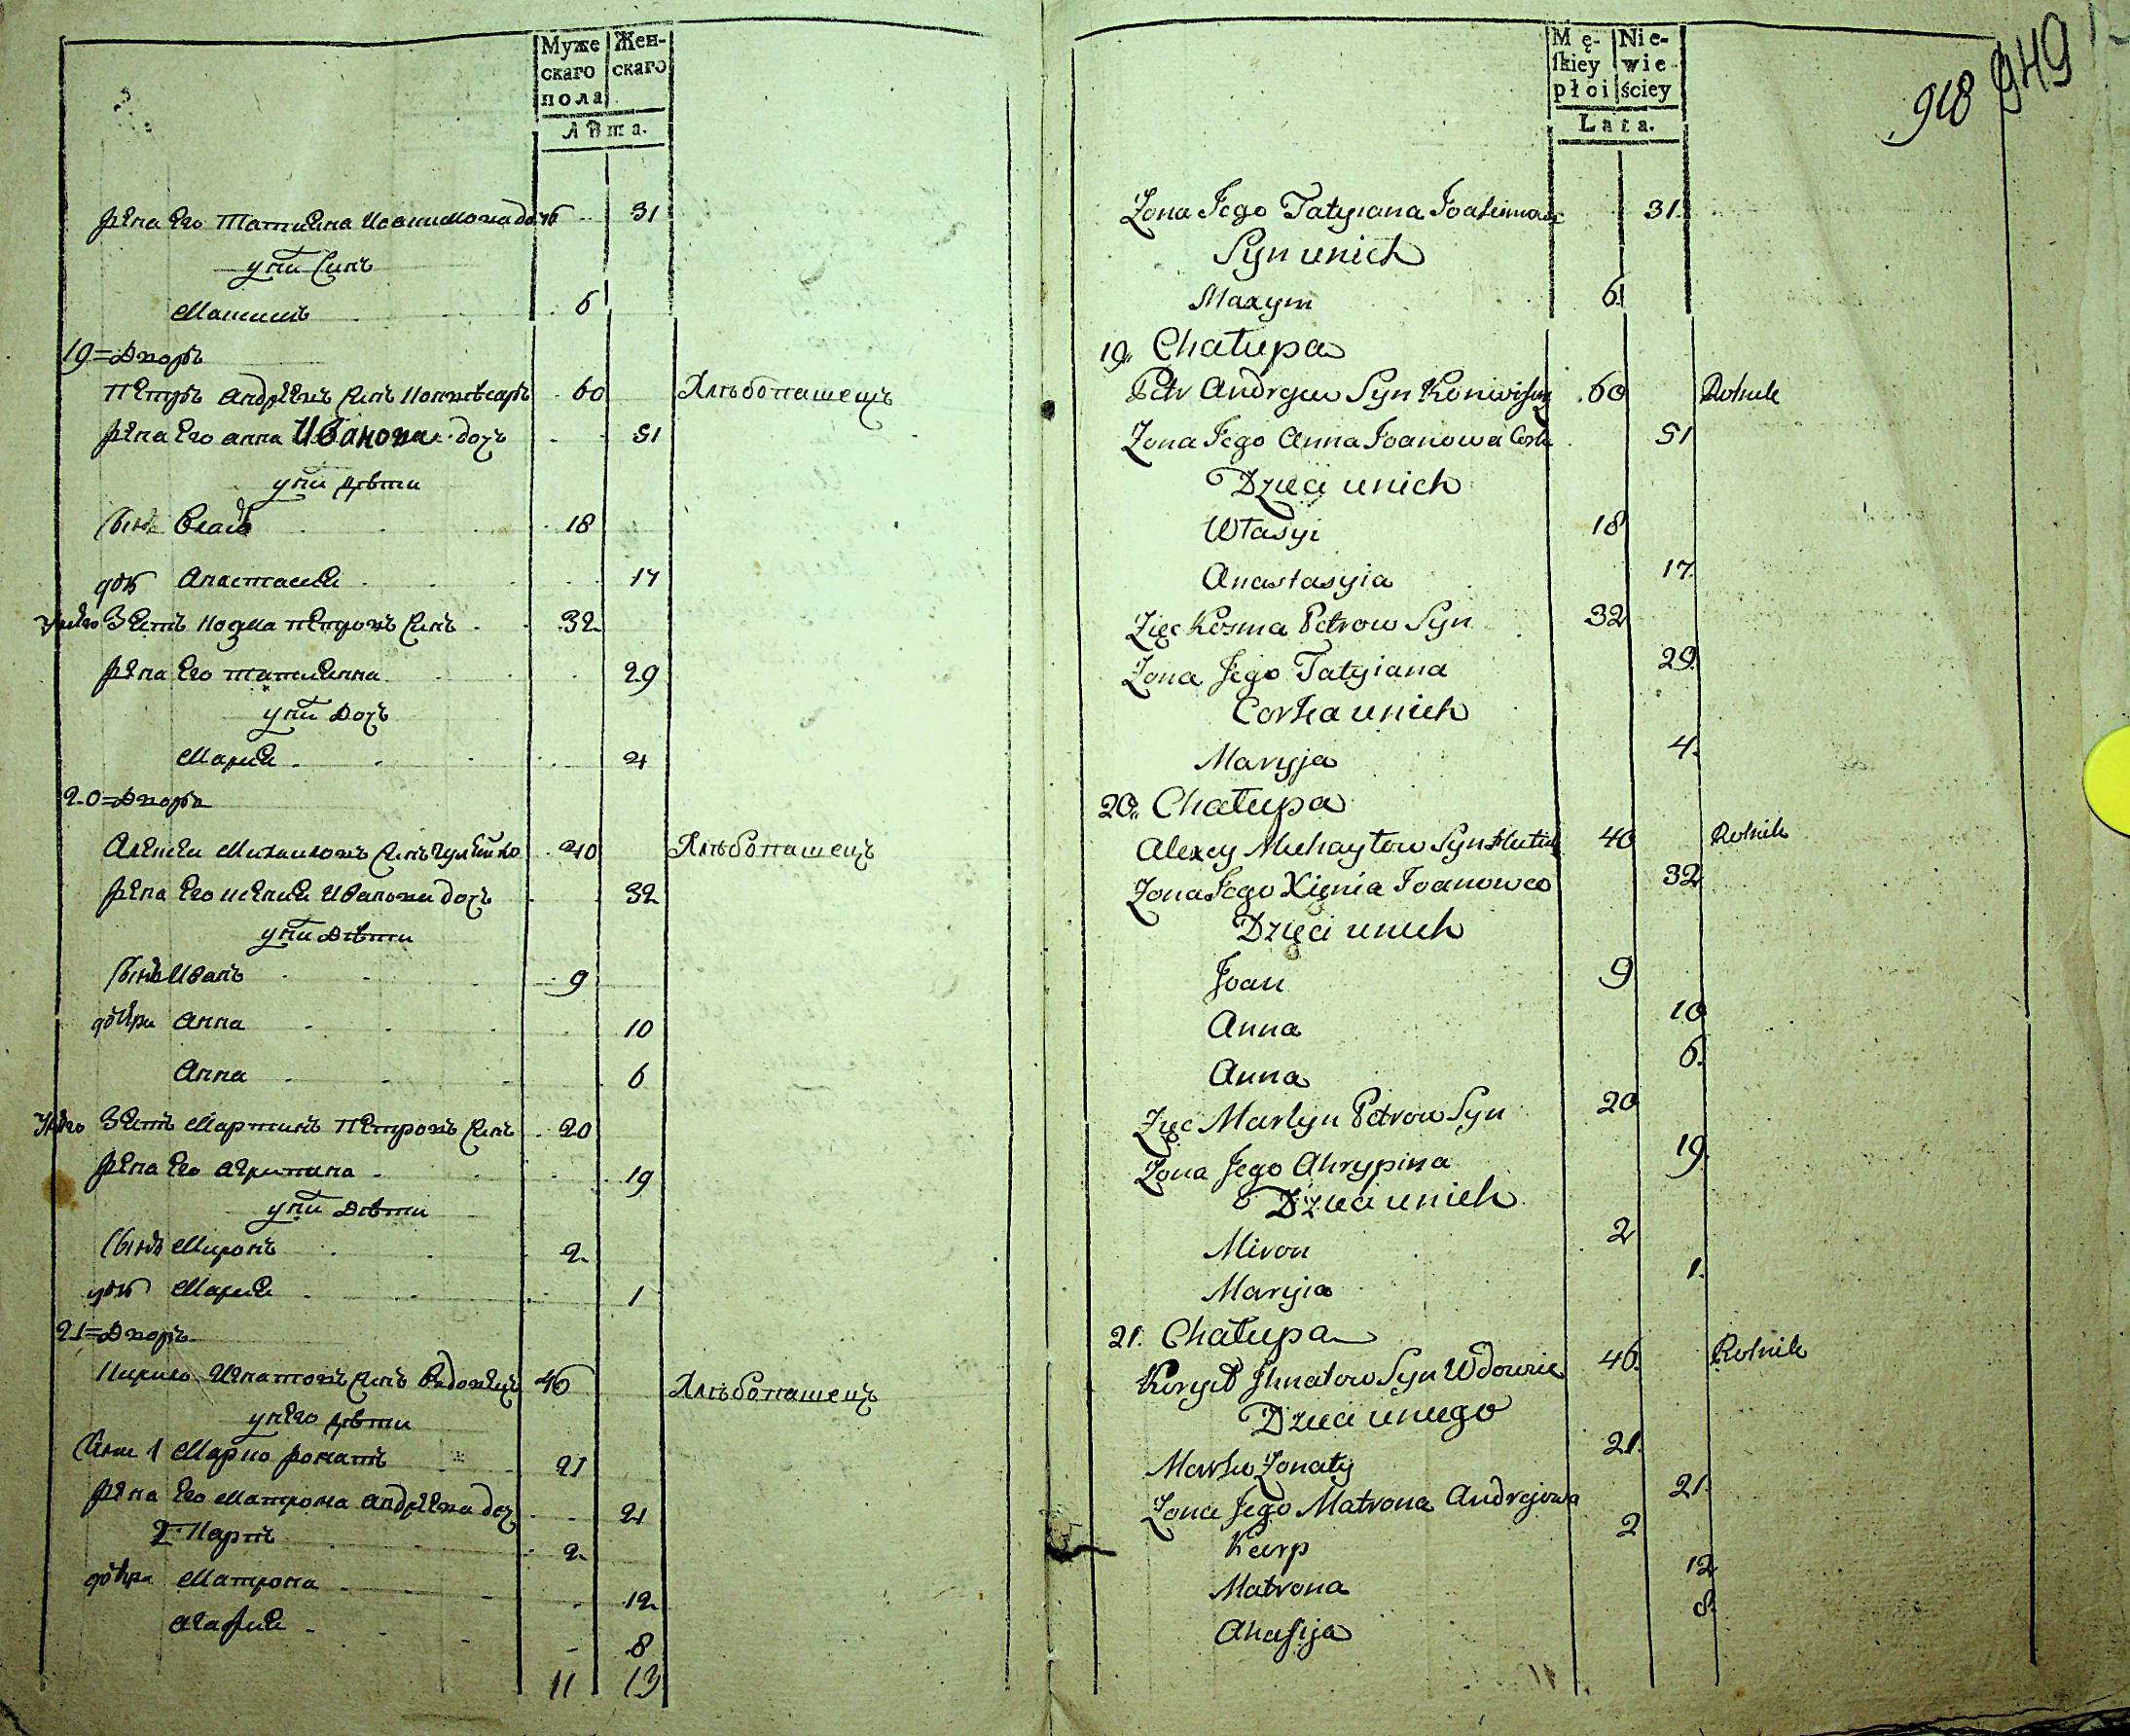 Муже
скаго
пола
Жен-
скаго
Лѣта.
жена его Татиана Иоакимова дочь 31
у нихъ синъ
Максимъ 6
19=Дворъ
Петръ Андреевъ синъ 60 Хлѣбопашецъ
жена его Анна Иванова доч 51
у нихъ дѣти
синъ Власъ 18
дочь Анастасия 17
у него зять Козма Петровъ синъ 32
жена его Татианна 29
у нихъ доч
Мария 4
20=Дворъ
Алексей Михаиловъ синъ 40 Хлѣбопашецъ
жена его Ксения Иванова доч 32
у нихъ дѣти
синъ Иванъ 9
дочери Анна 10
Анна 6
у него зять Мартинъ Петровъ синъ 20
жена его Агрипина 19
у нихъ дѣти
синъ Миронъ 2
дочь Мария 1
21=Дворъ
Кирило Игнатовъ синъ Вдовецъ 46 Хлѣбопашецъ
у него дѣти
сини 1 Марко женатъ 21
жена его Матрона Андреева доч 21
2 Карпъ 2
дочери Матрона 12
Агафия 8
11 13
Mę-
ſkiey
płci
Nie-
wie
ściey
Lata.
918 949
Żona Jego Tatyiana Joakimowa 31.
Syn unich
Maxym 6
19. Chałupa
Petr Andrzeiew Syn 60 Rolnik
Żona Jego Anna Joanowa Corka 51
Dzieci unich
Własyi 18
Anastasyia 17.
Zięc Kosma Petrow Syn 32
Żona Jego Tatyiana 29.
Corka unich
Maryja 4.
20. Chałupa
Alexey Michayłow Syn 40 Rolnik
Żona Jego Xienia Joanowa 32
Dzieci unich
Joan 9
Anna 10
Anna 6.
Zięc Martyn Petrow Syn 20
Żona Jego Ahrypina 19.
Dzieci unich
Miron 2
Maryia 1.
21. Chałupa
Kiryło Ihnatow Syn Wdowiec 46. Rolnik
Dzieci uniego
Marko Żonaty 21.
Żona Jego Matrona Andrejowa 21.
Karp 2
Matrona 12
Ahafija 8.